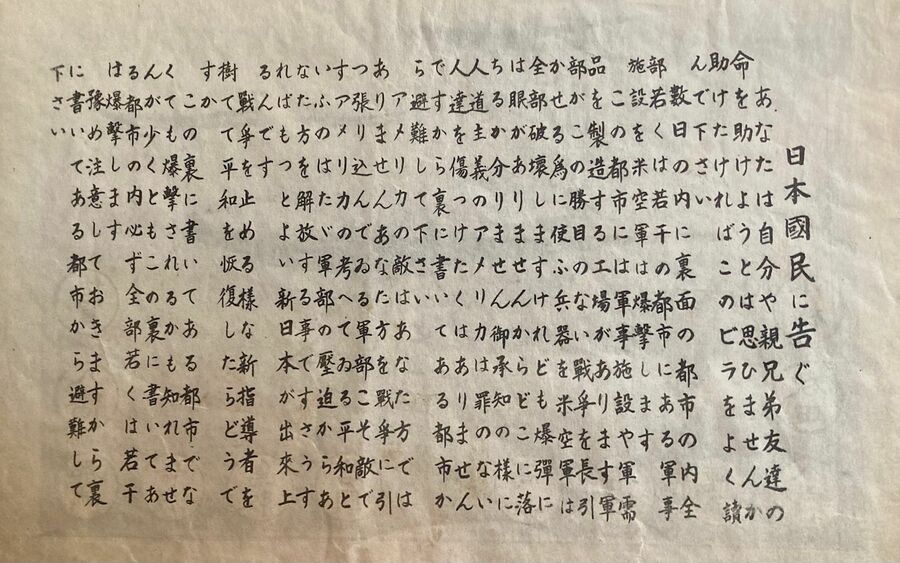 日本國民に告ぐ
あなたは自分や親兄弟友達の
命を助けようとは思ひませんか
助けたければこのビラをよく讀
んで下さい
數日の内に裏面の都市の内全
部若くは若干の都市にある軍事
施設を米空軍は爆撃します
この都市には軍事施設や軍需
品を製造する工場があります軍
部がこの勝目のない戰爭を長引
かせる為に使ふ兵器を米空軍は
全部破壞しますけれども爆彈に
は眼がありませんからどこに落
ちるか分りません御承知の様に
人道主義のアメリカは罪のない
人達を傷つけたくはありません
ですから裏に書いてある都市か
ら避難して下さい
アメリカの敵はあなた方では
ありませんあなた方を戰爭に引
張り込んでゐる軍部こそ敵で
すアメリカの考へてゐる平和と
いふのはたゞ軍部の壓迫からあ
なた方を解放する事ですさうす
ればもつとよい新日本が出來上
るんです
戰爭を止める様な新指導者を
樹てて平和を恢復したらどうで
すか
この裏に書いてある都市でな
くても爆撃されるかも知れませ
んが少くともこの裏に書いてあ
る都市の内必ず全部若くは若干
は爆撃します
豫め注意しておきますから裏
に書いてある都市から避難して
下さい